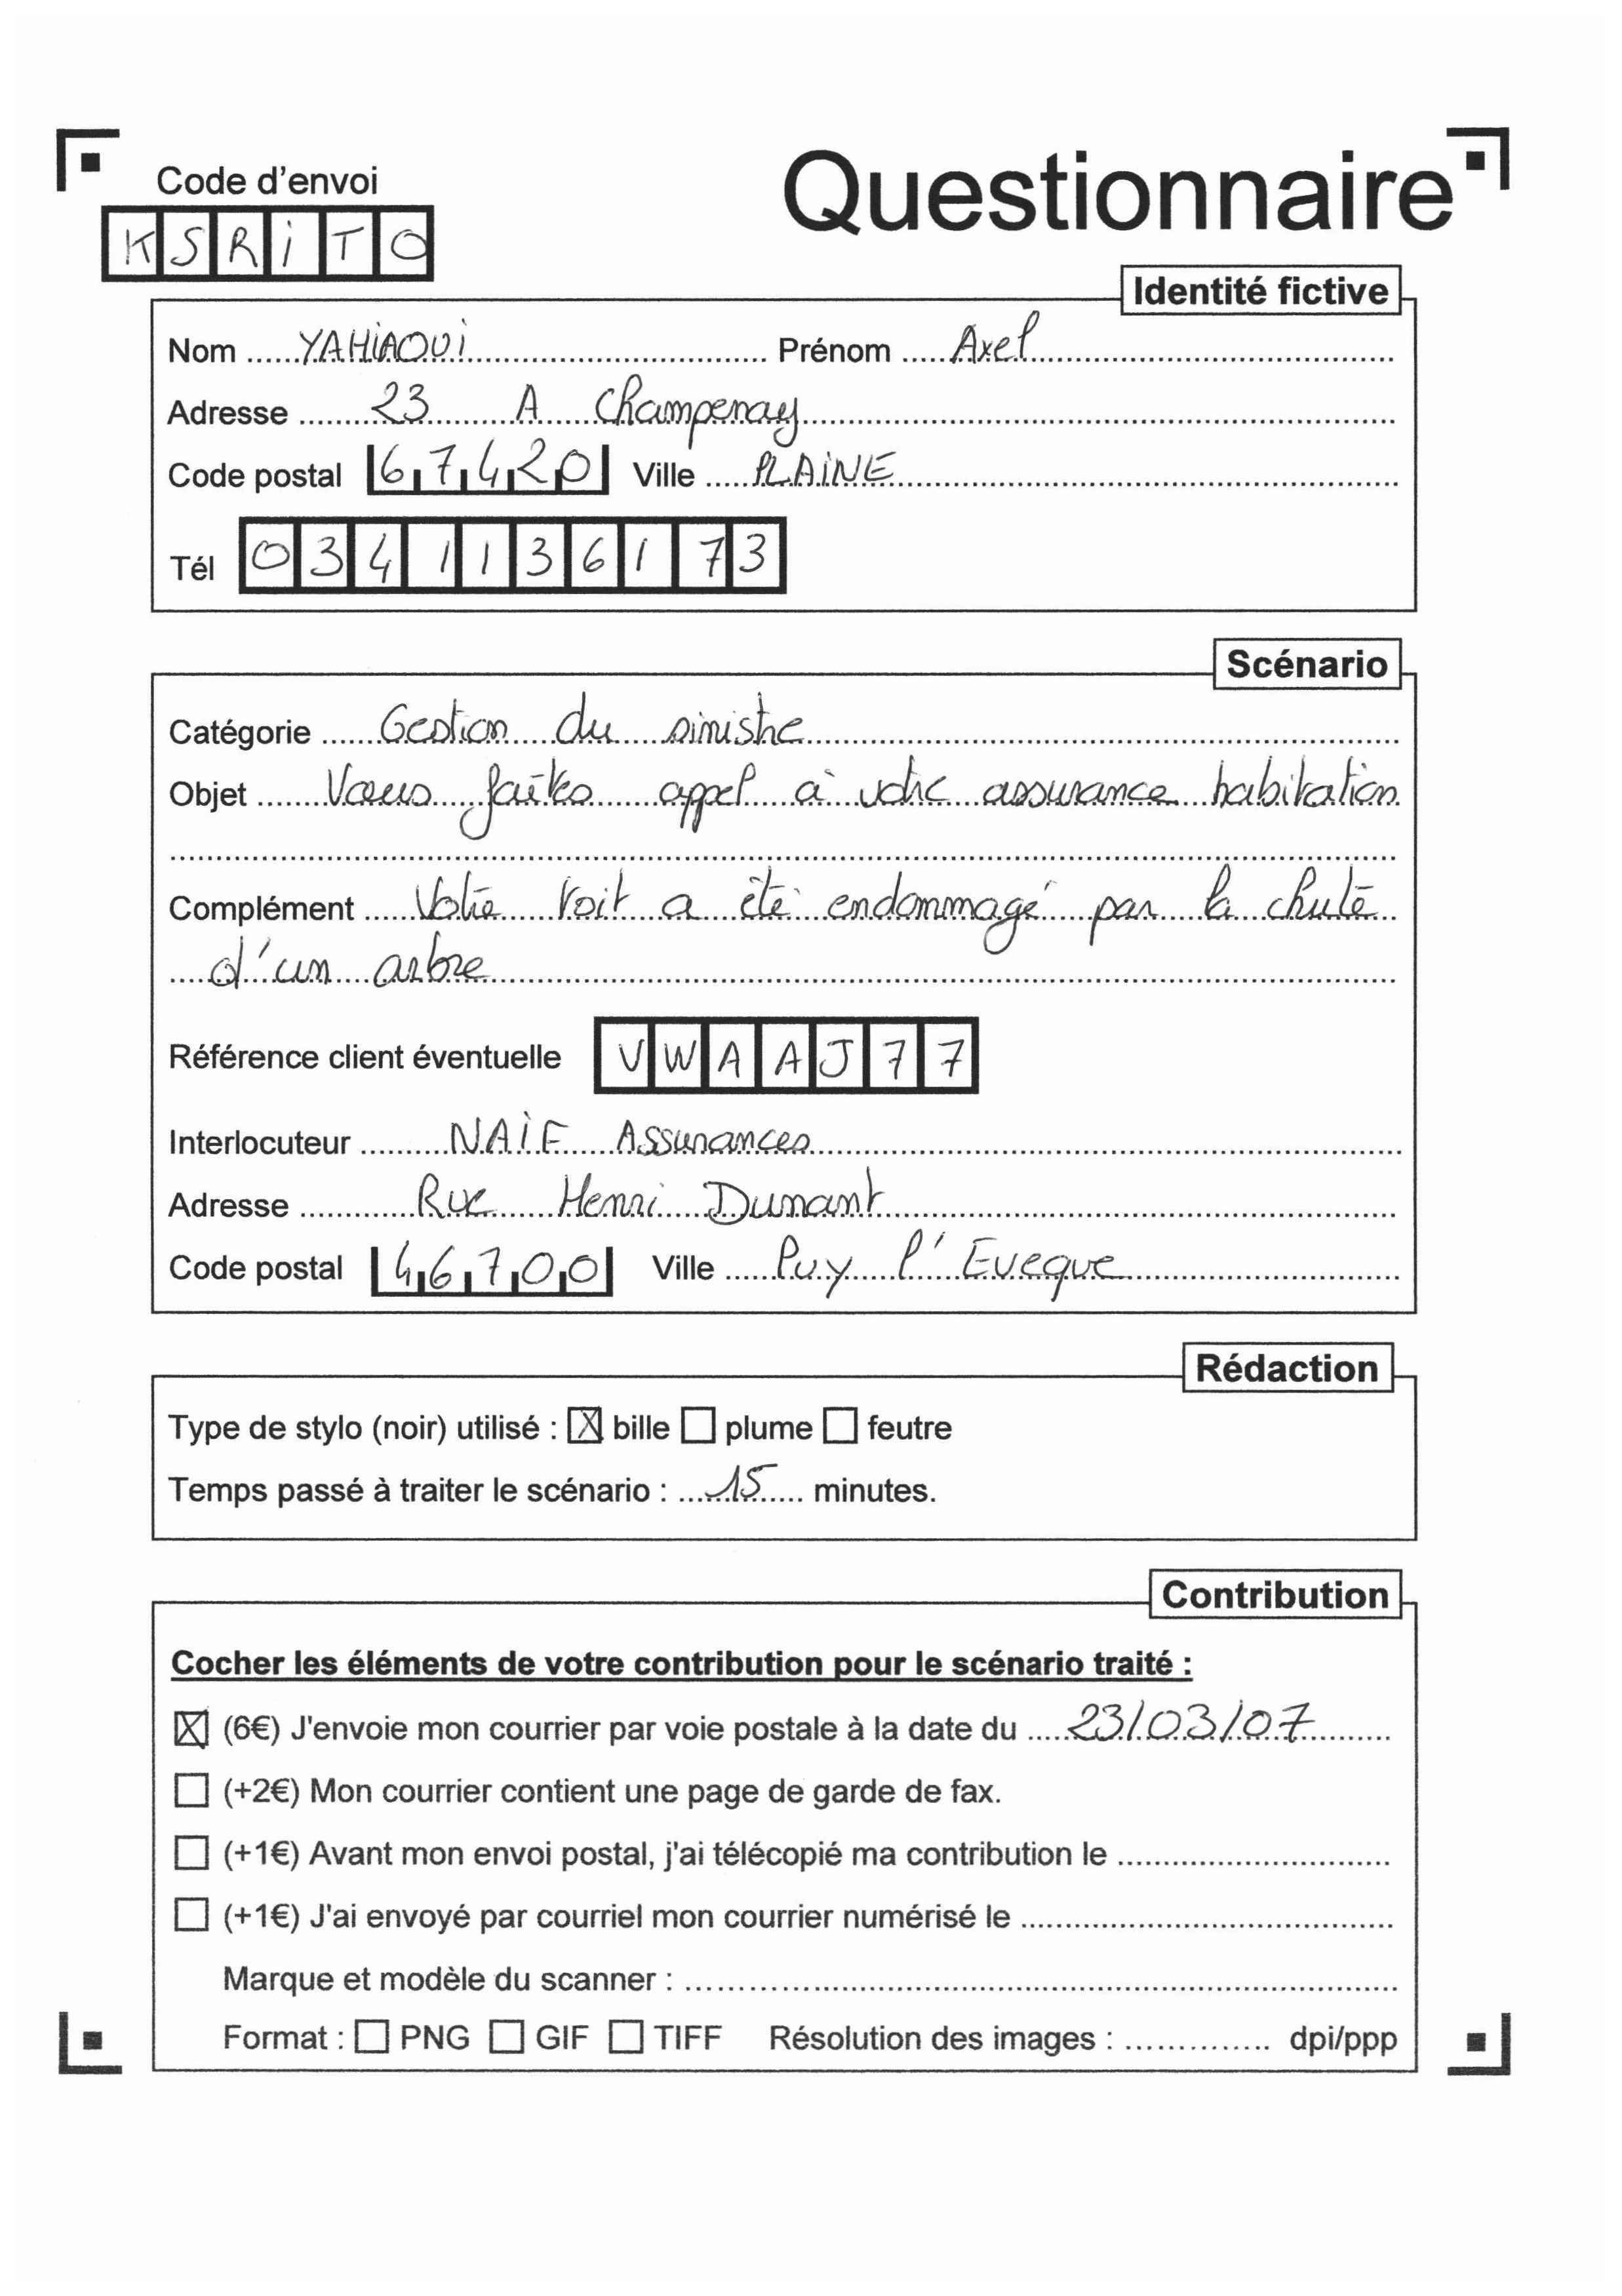 Code d'envoi
Questionnaire
KSRiTO
Identité fictive
Nom YAHiAOUi Prénom Axel
Adresse 23 A Champenay
Code postal 67420 Ville PLAiNE
Tél 0341136173
Scénario
Catégorie Gestion du sinistre
Objet Vous faîtes appel à votre assurance habitation
Complément Votre toit a été endommagé par la chute
d'un arbre
Référence client éventuelle VWAAJ77
Interlocuteur NAÏF Assurances
Adresse Rue Henri Dunant
Code postal 46700 Ville Puy l'Eveque
Rédaction
Type de stylo (noir) utilisé : ☒ bille ☐ plume ☐ feutre
Temps passé à traiter le scénario : 15 minutes.
Contribution
Cocher les éléments de votre contribution pour le scénario traité :
☒ (6€) J'envoie mon courrier par voie postale à la date du 23/03/07
☐ (+2€) Mon courrier contient une page de garde de fax.
☐ (+1€) Avant mon envoi postal, j'ai télécopié ma contribution le
☐ (+1€) J'ai envoyé par courriel mon courrier numérisé le
Marque et modèle du scanner :
Format : ☐ PNG ☐ GIF ☐ TIFF Résolution des images : dpi/ppp